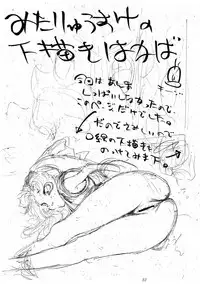 みたりゅうすけの
下描きはなば
今回はあんま
しっぱいしなかったので
このページだけでした。
だのでさみしいので
口絵の下描きも
のっけてみます。